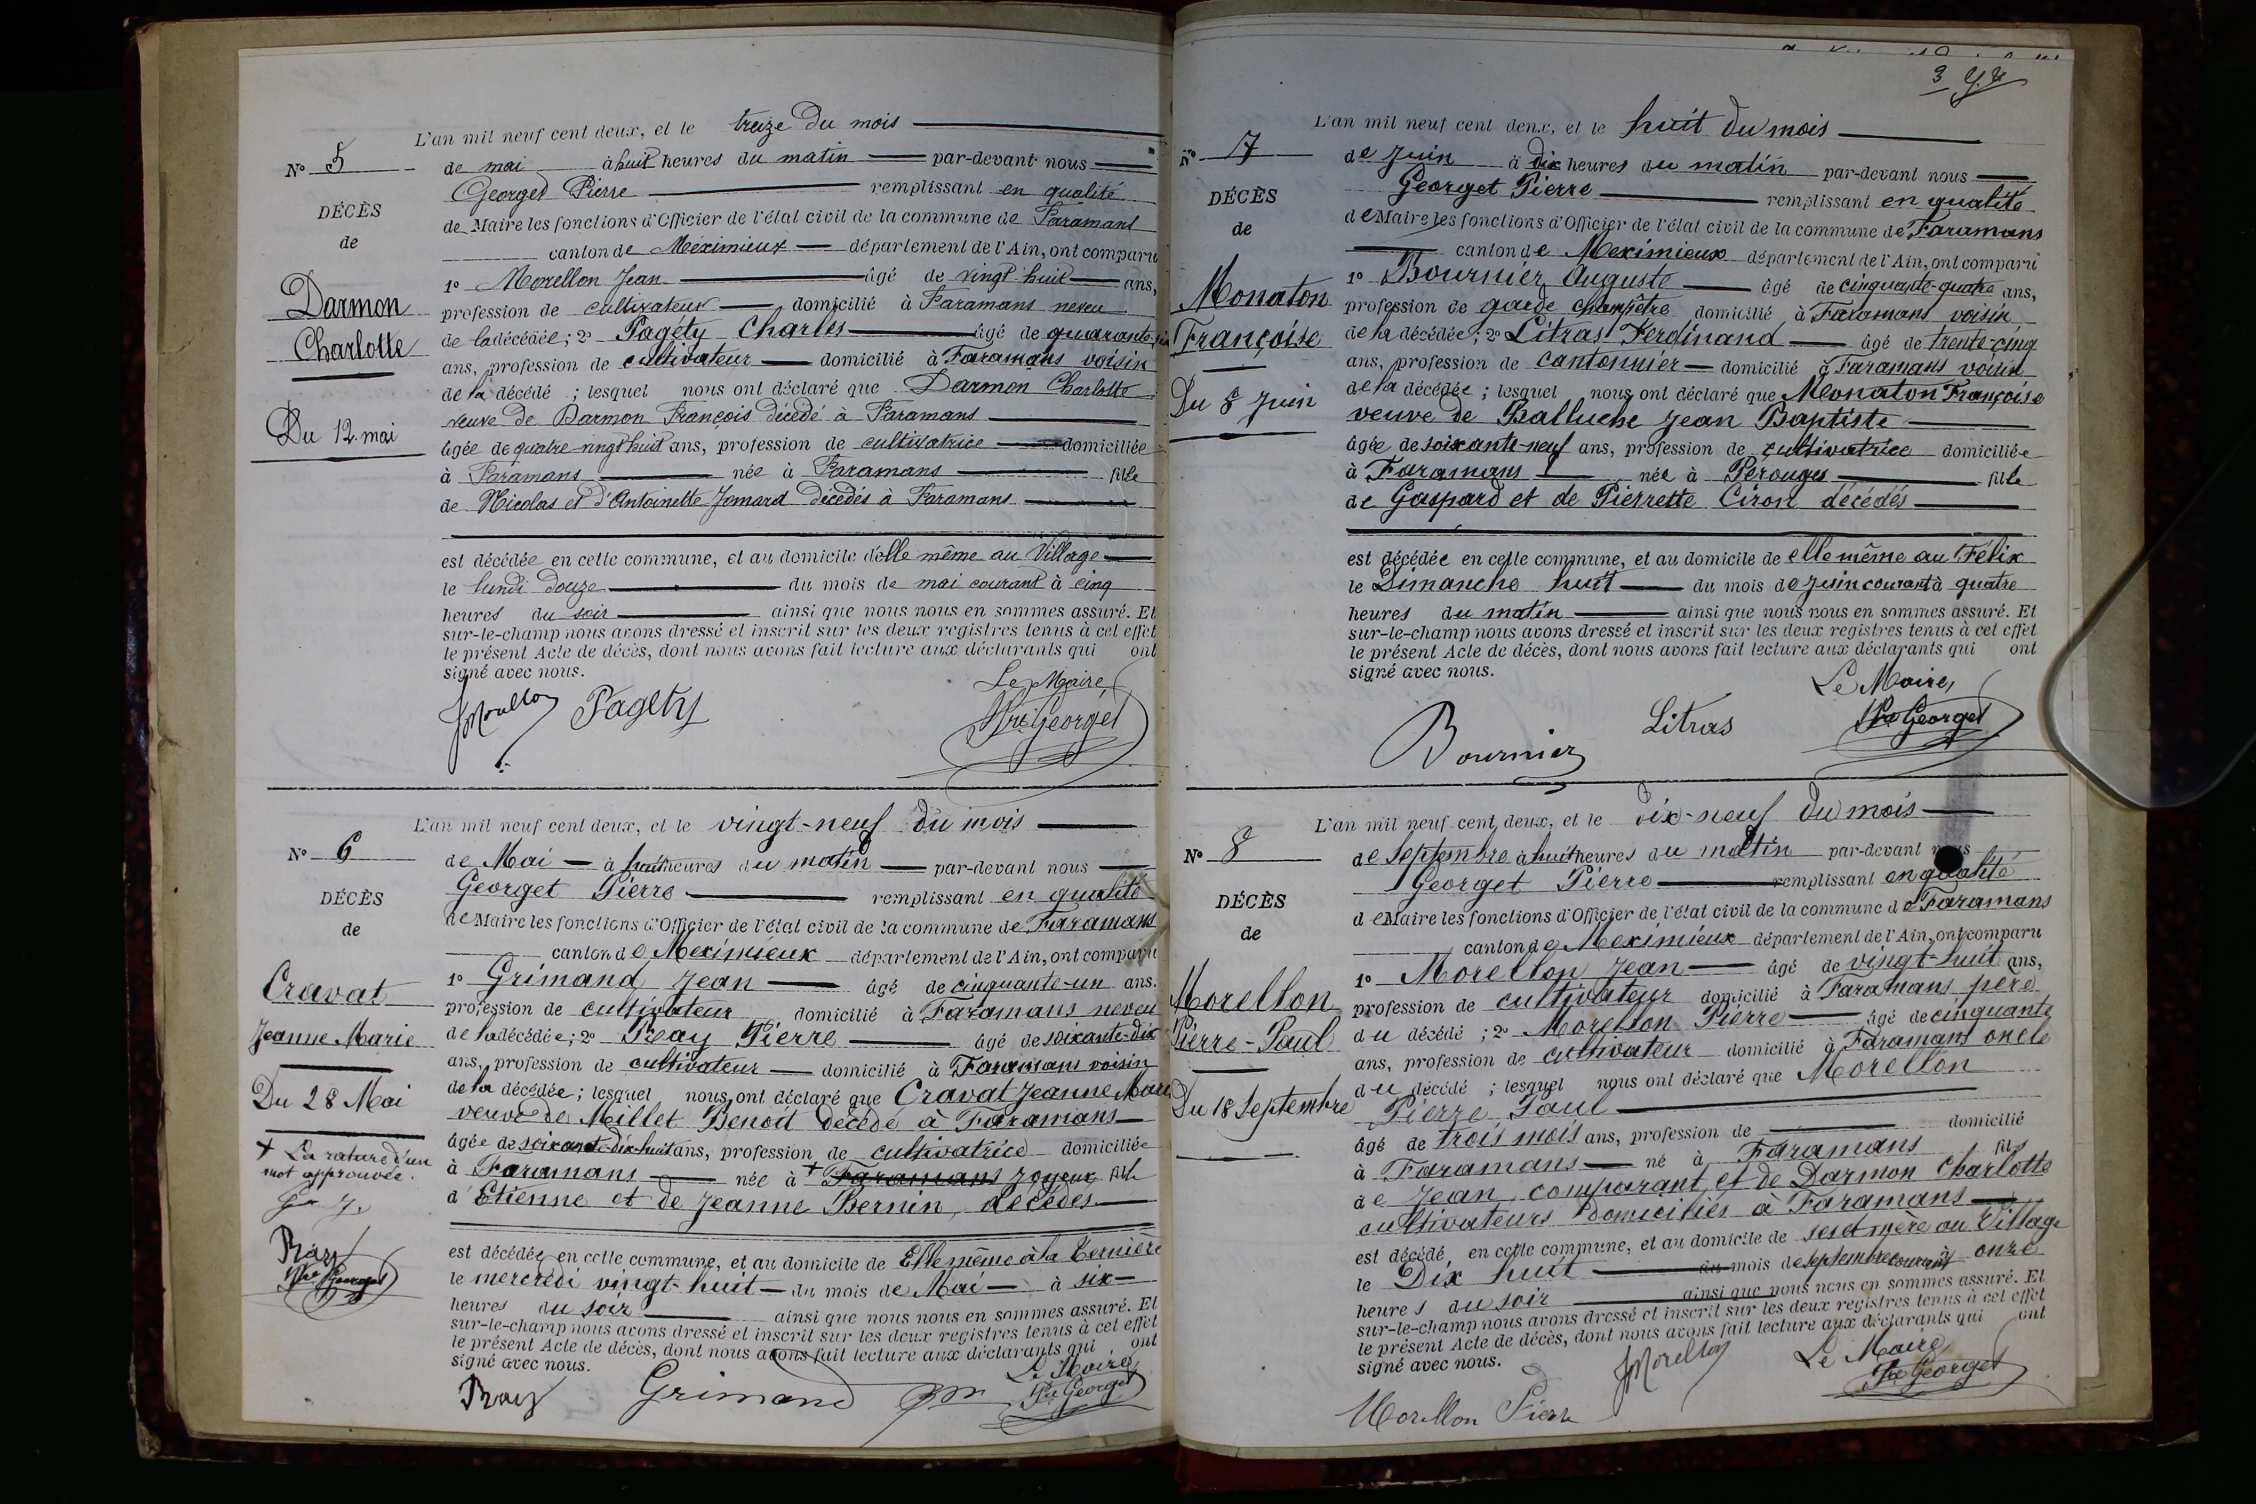 L'an mil neuf cent deux, et le treize du mois
N° 5
de mai à huit heures du matin par-devant nous
Georget Pierre remplissant en qualité
DÉCÈS
de Maire les fonctions d'Officier de l'état civil de la commune de Faramans
de
canton de Méximieux département de l'Ain, ont comparu
1° Morellon Jean âgé de vingt huit ans,
Darmon
profession de cultivateur domicilié à Faramans neveu
Charlotte
de la décédée; 2° Pagéty Charles âgé de quarante-six
ans, profession de cultivateur domicilié à Faramans voisin
de la décédé ; lesquel nous ont déclaré que Darmon Charlotte
veuve de Darmon François décédé à Faramans
Du 12 mai
âgée de quatre vingt huit ans, profession de cultivatrice domiciliée
à Faramans née à Faramans fille
de Nicolas et d'Antoinette Jomard décédés à Faramans
est décédée en cette commune, et au domicile d'elle même au Village
le lundi douze du mois de mai courant à cinq
heures du soir ainsi que nous nous en sommes assuré. Et
sur-le-champ nous avons dressé et inscrit sur les deux registres tenus à cet effet
le présent Acte de décès, dont nous avons fait lecture aux déclarants qui ont
signé avec nous.
Le Maire
JMorellon Pagéty Pre Georget
L'an mil neuf cent deux, et le vingt-neuf du mois
N° 6
de Mai à huit heures du matin par-devant nous
Georget Pierre remplissant en qualité
DÉCÈS
de Maire les fonctions d'Officier de l'état civil de la commune de Faramans
de
canton de Meximieux département de l'Ain, ont comparu
1° Grimand Jean âgé de cinquante-un ans.
Cravat
profession de cultivateur domicilié à Faramans neveu
Jeanne Marie
de la décédée; 2° Reay Pierre âgé de soixante-dix
ans, profession de cultivateur domicilié à Faramans voisin
de la décédée; lesquel nous ont déclaré que Cravat Jeanne Marie
Du 28 Mai
veuve de Millet Benoit décédé à Faramans
âgée de soixante-dix-huit ans, profession de cultivatrice domiciliée
+ La rature d'un
mot approuvée.
à Faramans née à + Faramans Joyeux fille
d'Etienne et de Jeanne Bernin, décédés
est décédée en cette commune, et au domicile de Elle même à la
le mercredi vingt-huit du mois de Mai à six
heures du soir ainsi que nous nous en sommes assuré. Et
sur-le-champ nous avons dressé et inscrit sur les deux registres tenus à cet effet
le présent Acte de décès, dont nous avons fait lecture aux déclarants qui ont
signé avec nous.
Le Maire
Pre Georget
Grimand
Pre Georget
3
L'an mil neuf cent deux, et le huit du mois
N° 7
de Juin à dix heures du matin par-devant nous
Georget Pierre remplissant en qualité
DÉCÈS
de Maire les fonctions d'Officier de l'état civil de la commune de Faramans
de
canton de Meximieux département de l'Ain, ont comparu
1° Bournier Auguste âgé de cinquante-quatre ans,
Monaton
profession de garde champêtre domicilié à Faramans voisin
Françoise
de la décédée; 2° Litras Ferdinand âgé de trente-cinq
ans, profession de cantonnier domicilié à Faramans voisin
Du 8 Juin
de la décédée ; lesquel nous ont déclaré que Monaton Françoise
veuve de Balluche Jean Baptiste
âgée de soixante-neuf ans, profession de cultivatrice domiciliée
à Faramans née à Perouges fille
de Gaspard et de Pierrette Ciron décédés
est décédée en cette commune, et au domicile de elle même au Félix
le Dimanche huit du mois de Juin courant à quatre
heures du matin ainsi que nous nous en sommes assuré. Et
sur-le-champ nous avons dressé et inscrit sur les deux registres tenus à cet effet
le présent Acte de décès, dont nous avons fait lecture aux déclarants qui ont
signé avec nous.
Le Maire,
Bournier Litras Pre Georget
L'an mil neuf cent deux, et le dix-neuf du mois
N° 8
de Septembre à huit heures du matin par-devant nous
Georget Pierre remplissant en qualité
DÉCÈS
de Maire les fonctions d'Officier de l'état civil de la commune de Faramans
de
canton de Meximieux département de l'Ain, ont comparu
1° Morellon Jean âgé de vingt-huit ans,
Morellon
profession de cultivateur domicilié à Faramans père
Pierre-Paul
du décédé ; 2° Morellon Pierre âgé de cinquante
ans, profession de cultivateur domicilié à Faramans oncle
du décédé ; lesquel nous ont déclaré que Morellon
Du 18 Septembre
Pierre Paul
âgé de trois mois ans, profession de domicilié
à Faramans né à Faramans fils
de Jean, comparant, et de Darmon Charlotte
cultivateurs domiciliés à Faramans
est décédé en cette commune, et au domicile de ses et mère au Village
le Dix huit du mois de septembre courant à onze
heures du soir ainsi que nous nous en sommes assuré. Et
sur-le-champ nous avons dressé et inscrit sur les deux registres tenus à cet effet
le présent Acte de décès, dont nous avons fait lecture aux déclarants qui ont
signé avec nous.
JMorellon Le Maire
Pre Georget
Morellon Pierre